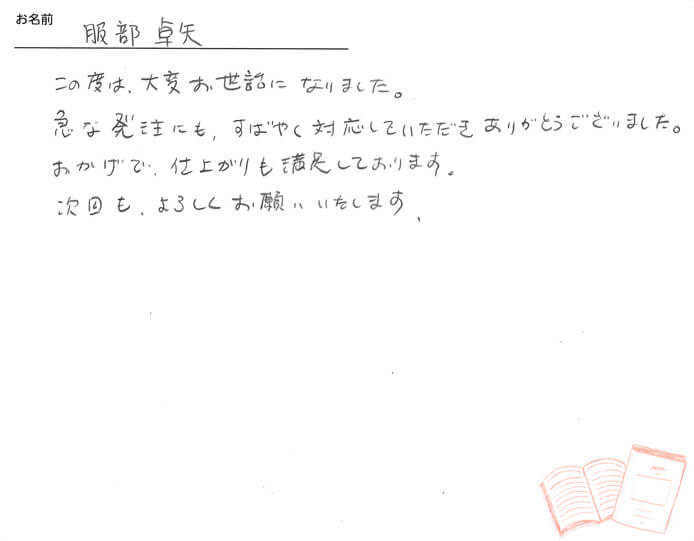 お名前
服部 卓矢
この度は、大変お世話になりました。
急な発注にも、すばやく対応していただきありがとうございました。
おかげで、仕上がりも満足しております。
次回も、よろしくお願いいたします、